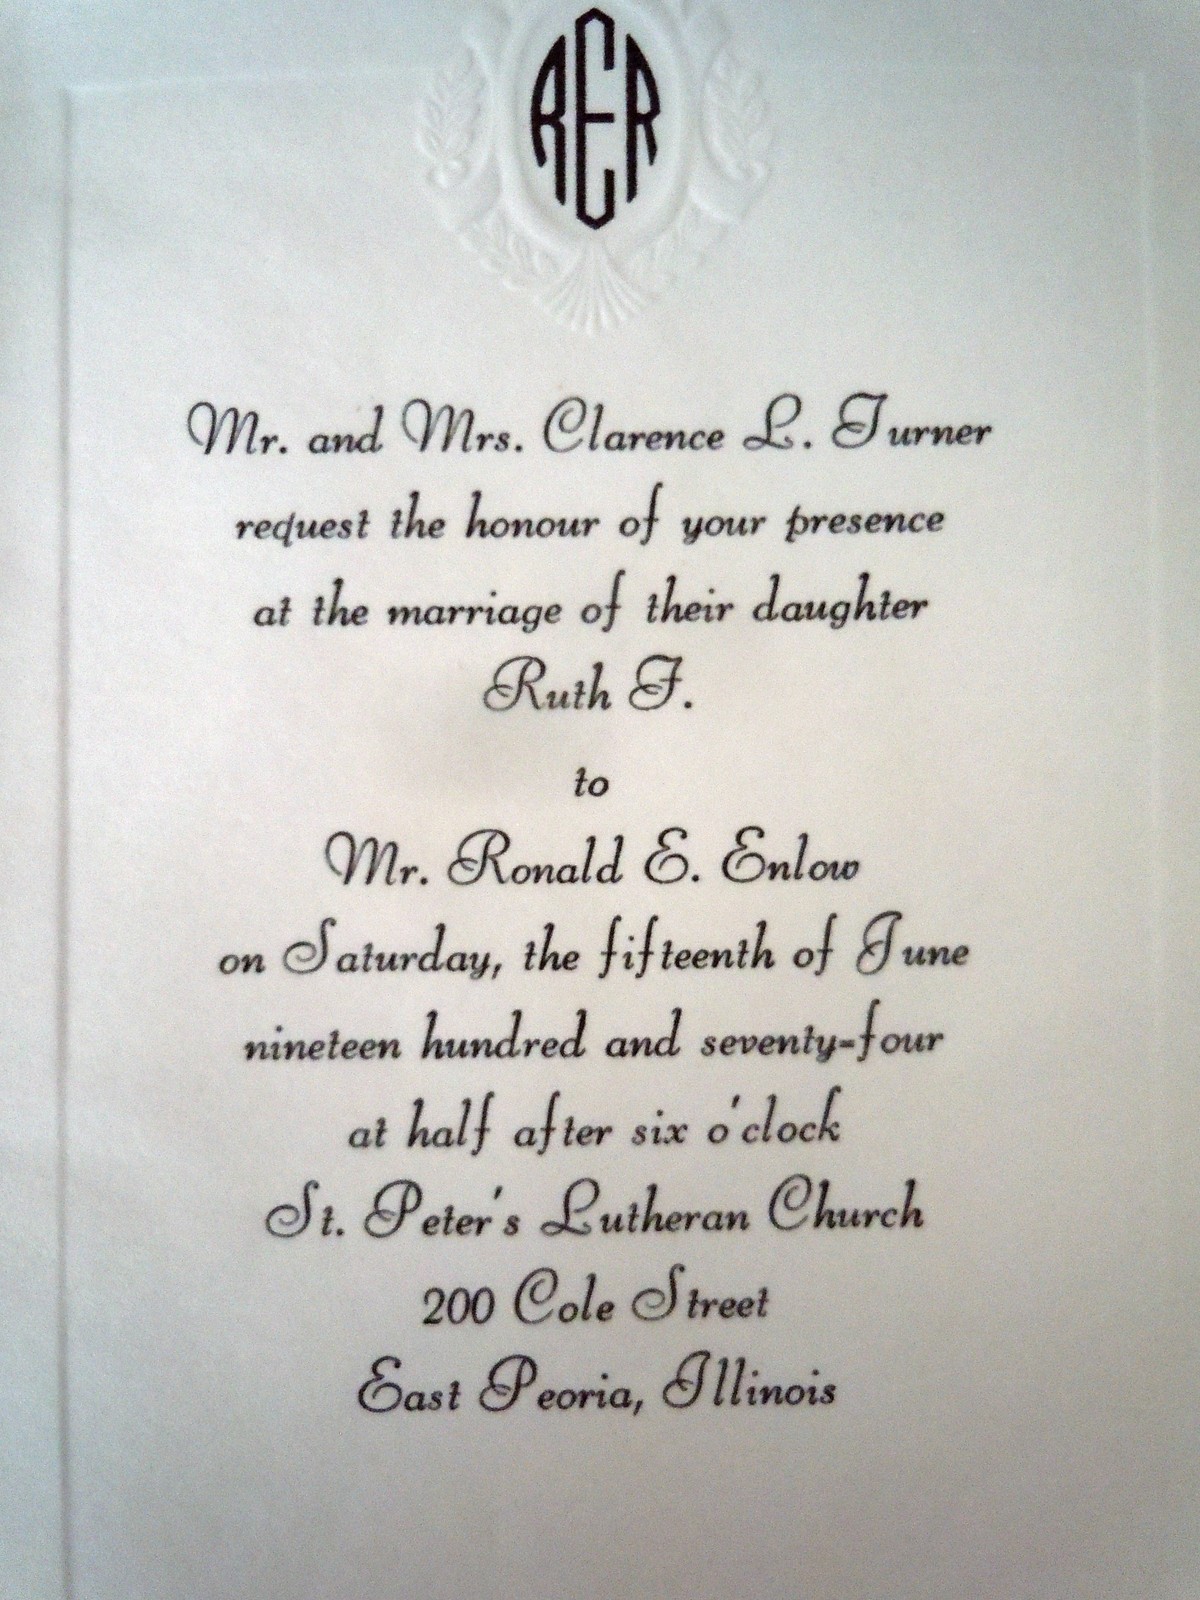 RER
Mr. and Mrs. Clarence L. Turner
request the honour of your presence
at the marriage of their daughter
Ruth F.
to
Mr. Ronald E. Enlow
on Saturday, the fifteenth of June
nineteen hundred and seventy-four
at half after six o'clock
St. Peter's Lutheran Church
200 Cole Street
East Peoria, Illinois